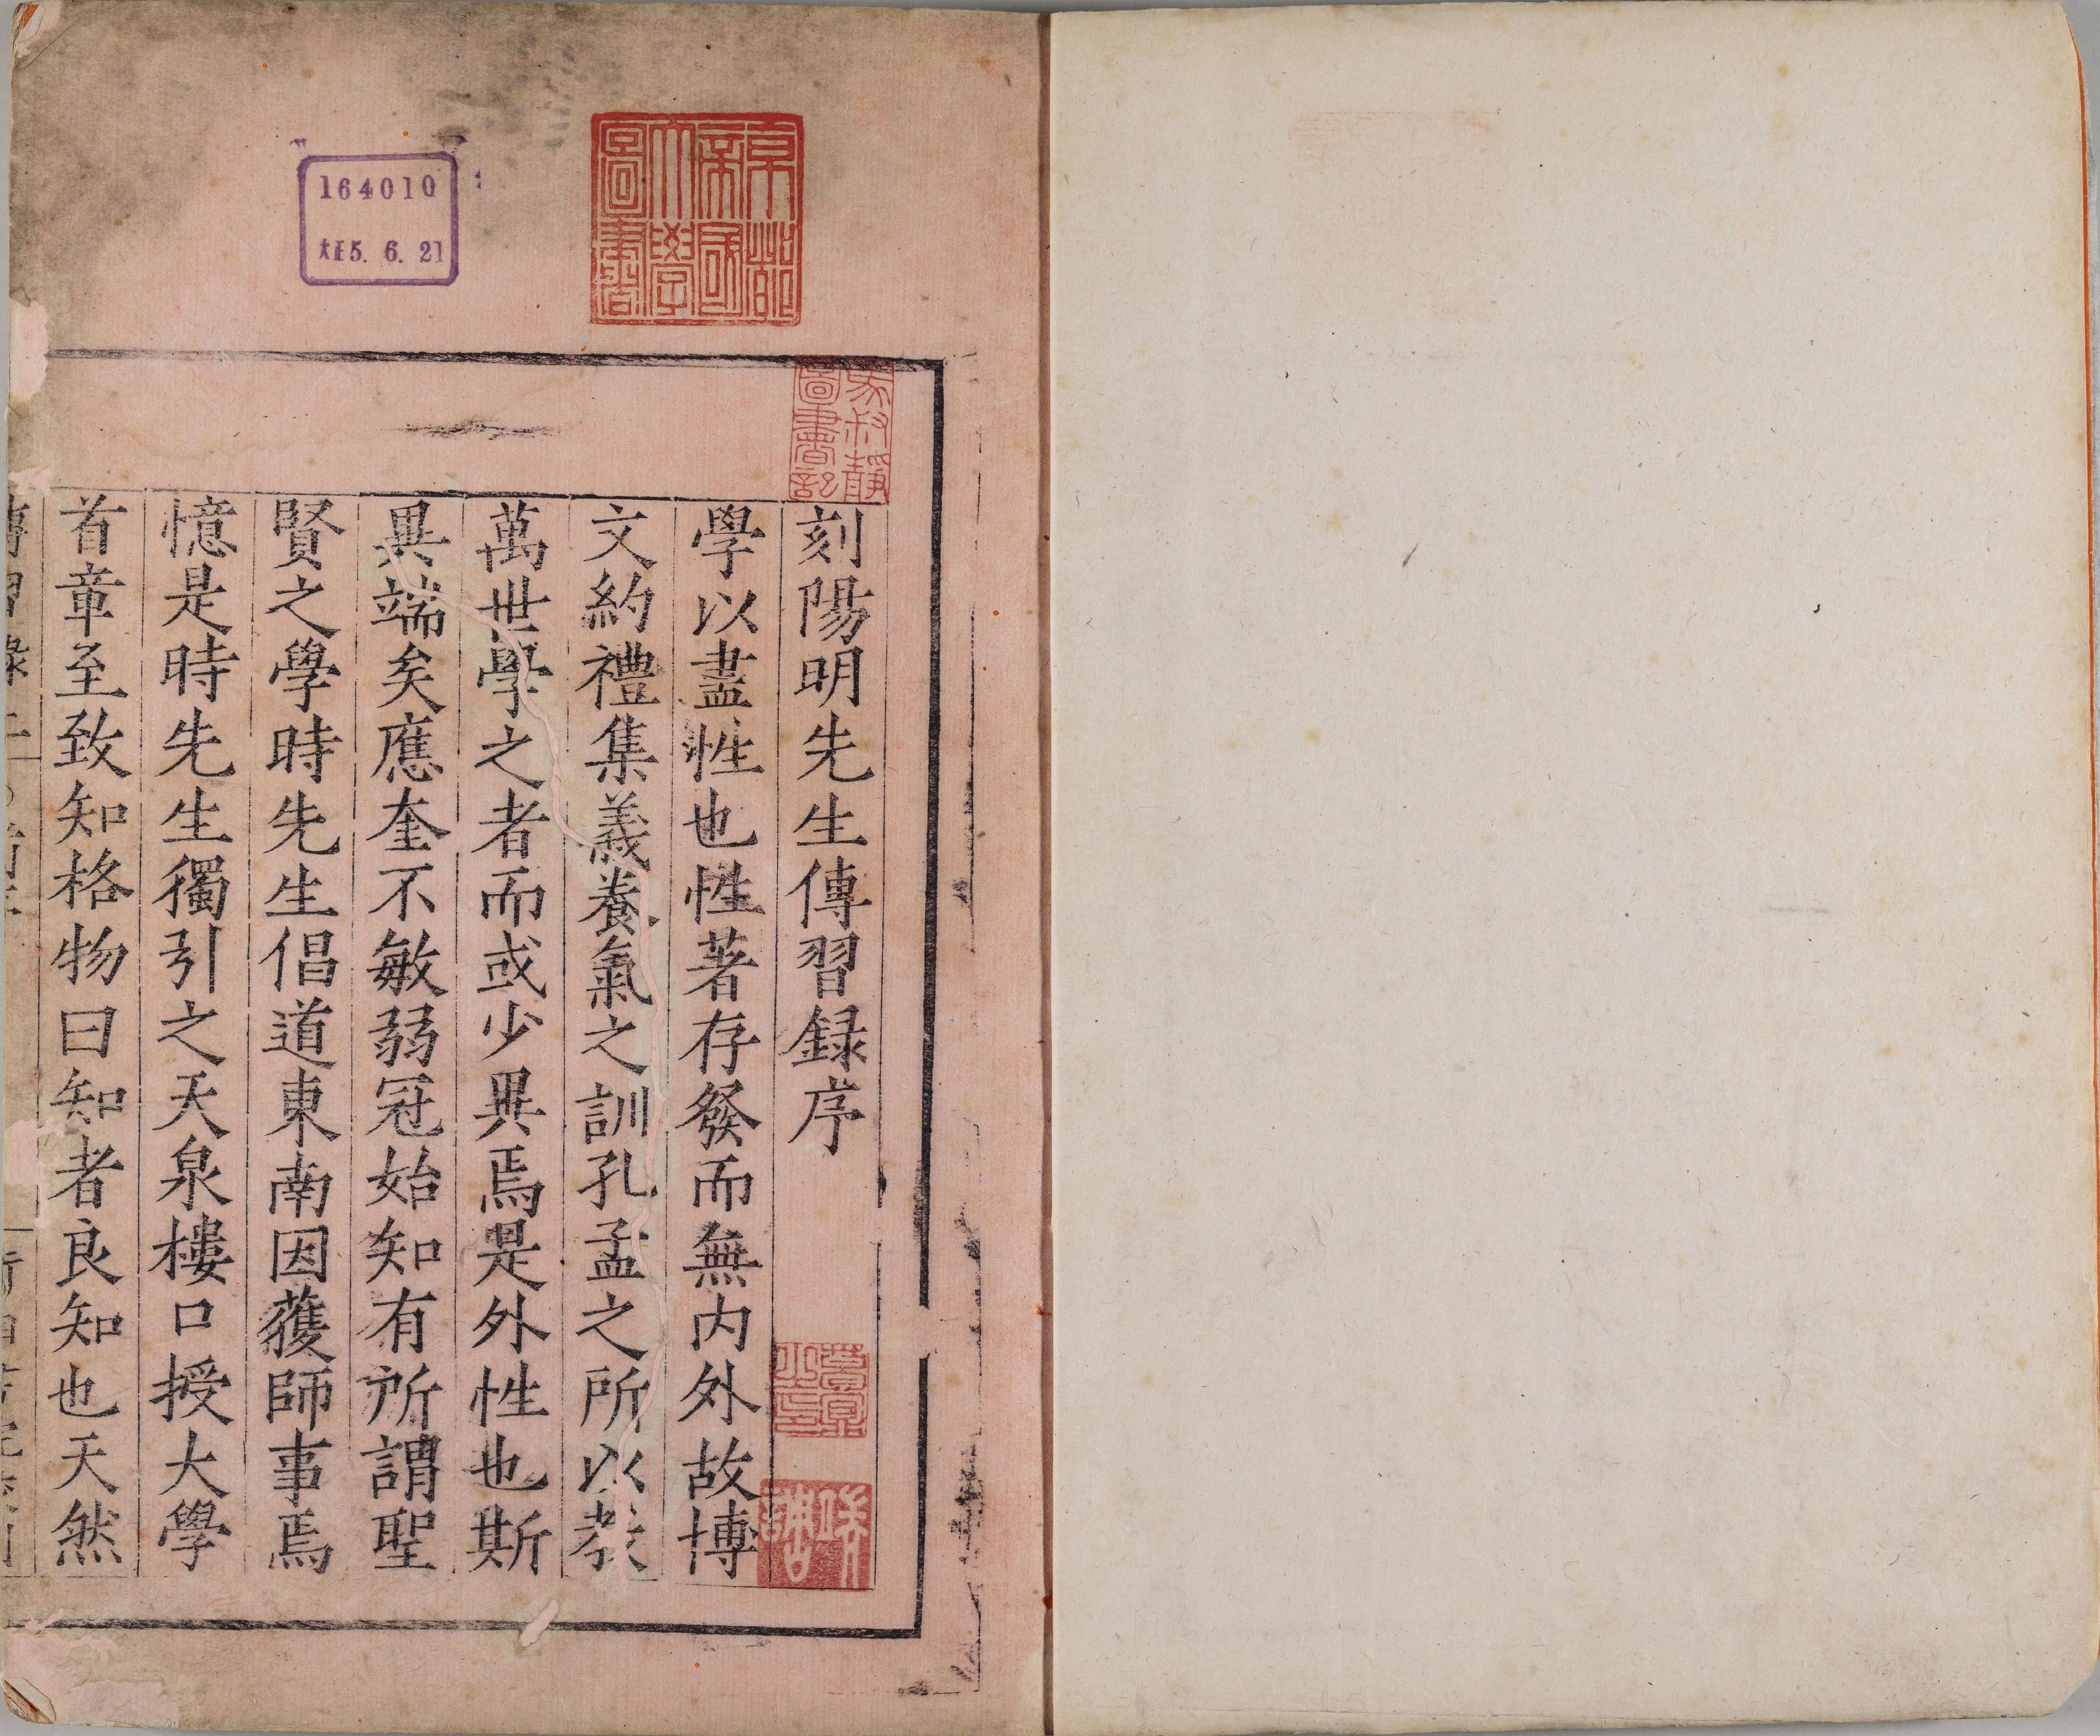 京都
帝國
大學
圖書
164010
大正5. 6. 21
圖書記
刻陽明先生傳習録序
學以盡性也性著存發而無内外故博
文約禮集義養氣之訓孔孟之所以教
萬世學之者而或少異焉是外性也斯
異端矣應奎不敏弱冠始知有所謂聖
賢之學時先生倡道東南因獲師事焉
憶是時先生獨引之天泉樓口授大學
首章至致知格物曰知者良知也天然
傳習録